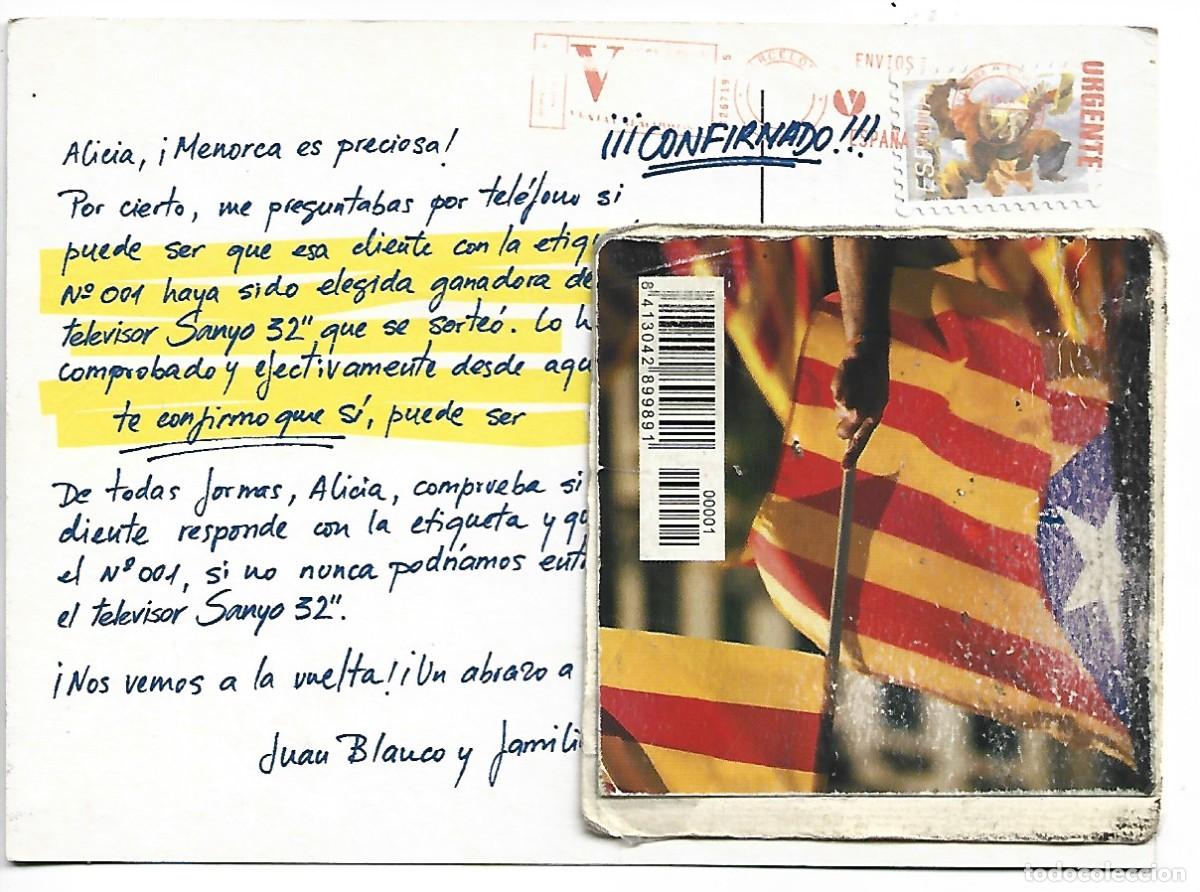 ENVIOS
URGENTE
V
26719 5
ESPAÑA
¡¡¡CONFIRNADO!!!
Alicia, ¡Menorca es preciosa!
Por cierto, me preguntabas por teléfono si
puede ser que esa cliente con la etiqu
Nº 001 haya sido elegida ganadora de
televisor Sanyo 32" que se sorteó. Lo h
comprobado y efectivamente desde aqu
te confirmo que sí, puede ser
De todas formas, Alicia, comprueba si
cliente responde con la etiqueta y qu
el Nº 001, si no nunca podríamos ent
el televisor Sanyo 32".
¡Nos vemos a la vuelta! ¡Un abrazo a
Juan Blanco y famili
8 413042 899891
00001
todocoleccion